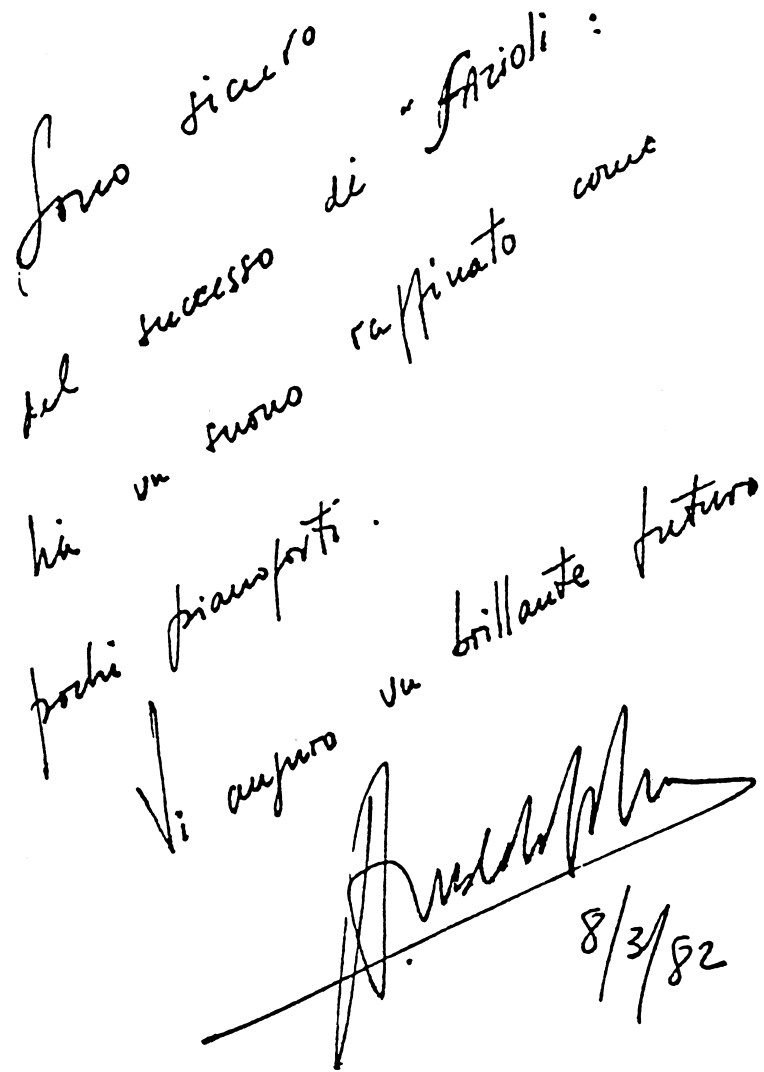 Sono sicuro
del successo di "Fazioli:
ha un suono raffinato come
pochi pianoforti.
Vi auguro un brillante futuro
8/3/82